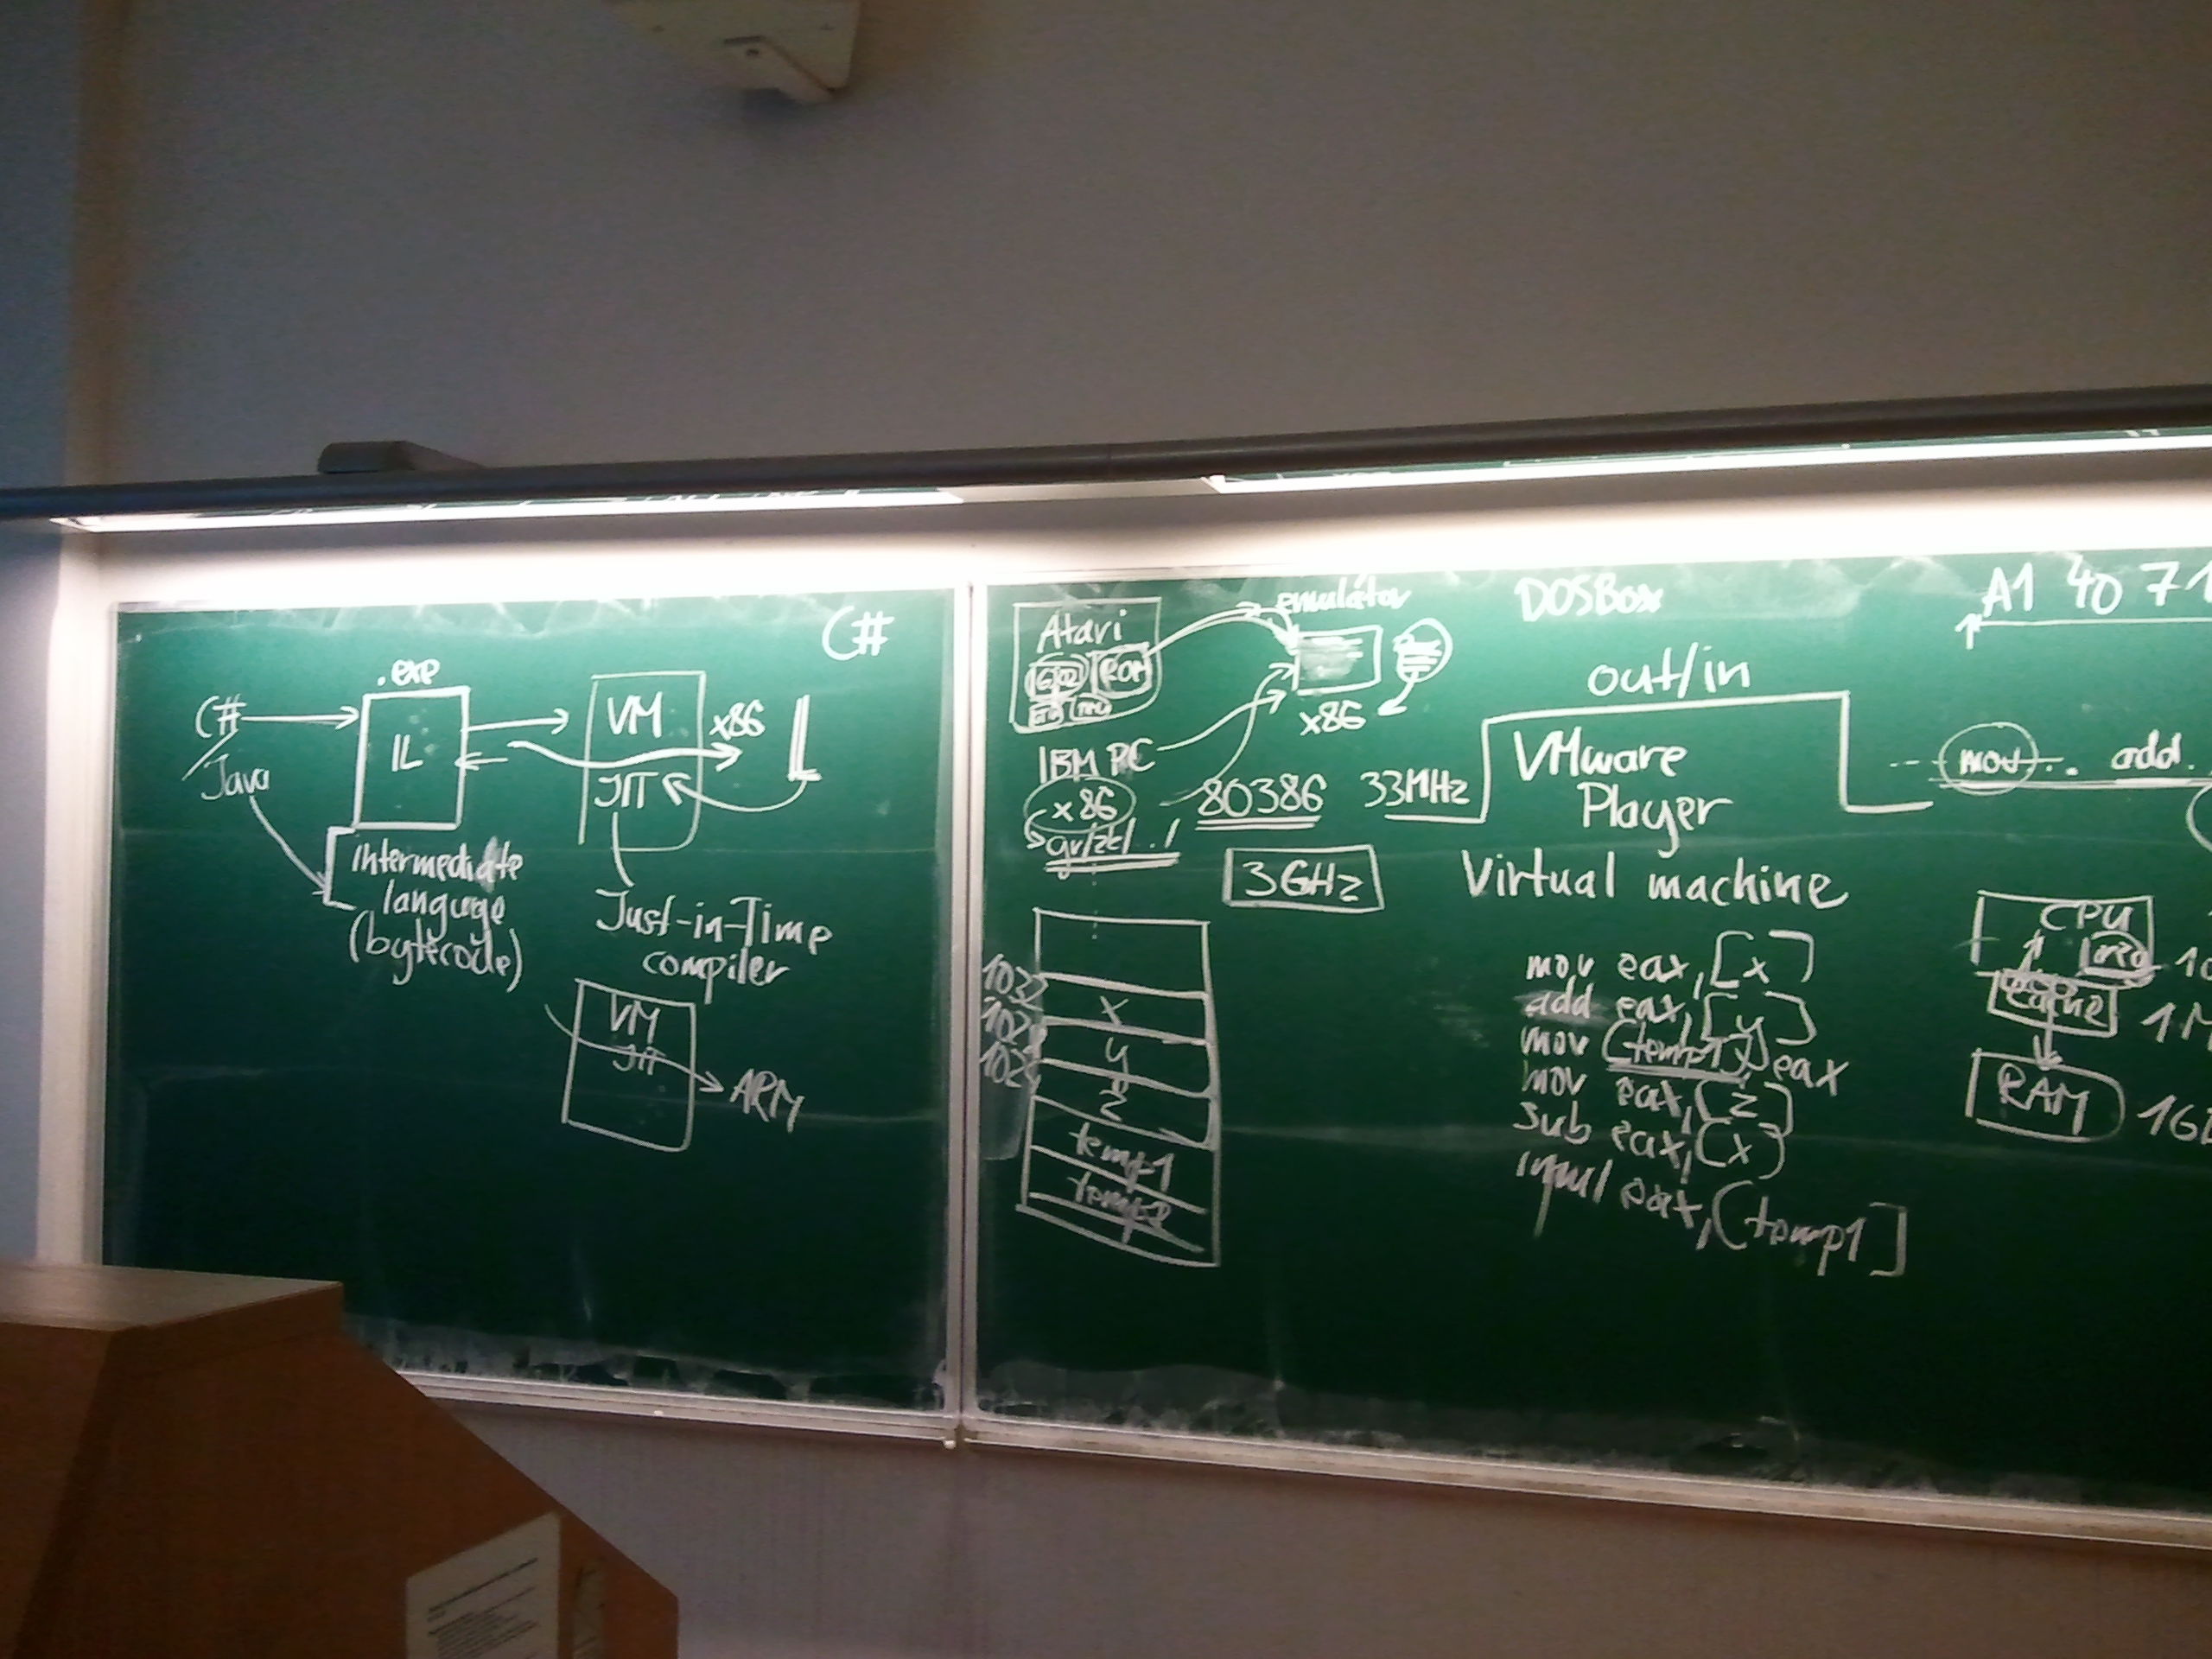 C#
.exe
C#
IL
VM
x86
JIT
Java
intermediate
language
(bytecode)
Just-in-Time
compiler
VM
JIT
ARM
Atari
6502
ROM
emulátor
x86
IBM PC
x86
80386 33MHz
3GHz
DOSBox
out/in
VMware
Player
Virtual machine
1032
1028
1024
x
y
z
temp1
temp2
mov eax,[x]
add eax,[y]
mov [temp1],eax
mov eax,[z]
sub eax,[x]
imul eax,[temp1]
A1 40 71
mov .. add..
CPU
cache
RAM